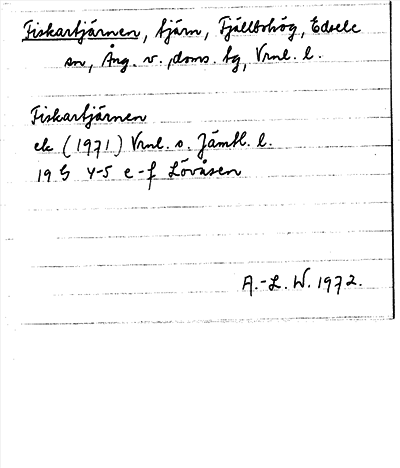 Fiskartjärnen, tjärn, Fjällbohög, Edsele
sn, Ång. v. doms. tg, Vrnl. l.
Fiskartjärnen
ek (1971) Vrnl. o. Jämtl. l.
19 G 4-5 e-f Lövåsen
A.-L. W. 1972.